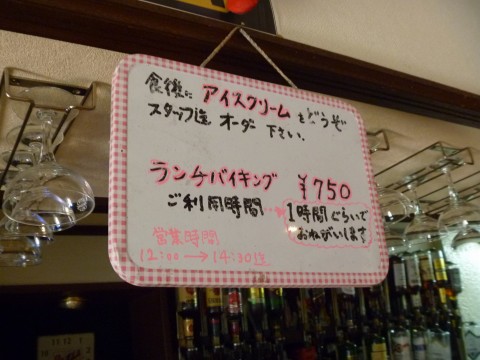 食後に アイスクリームをどうぞ
スタッフ迄 オーダー 下さい。
ランチバイキング ¥750
ご利用時間… 1時間ぐらいで
おねがいします
営業時間
12:00→14:30迄